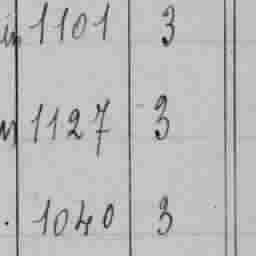 1101 3
1127 3
1040 3